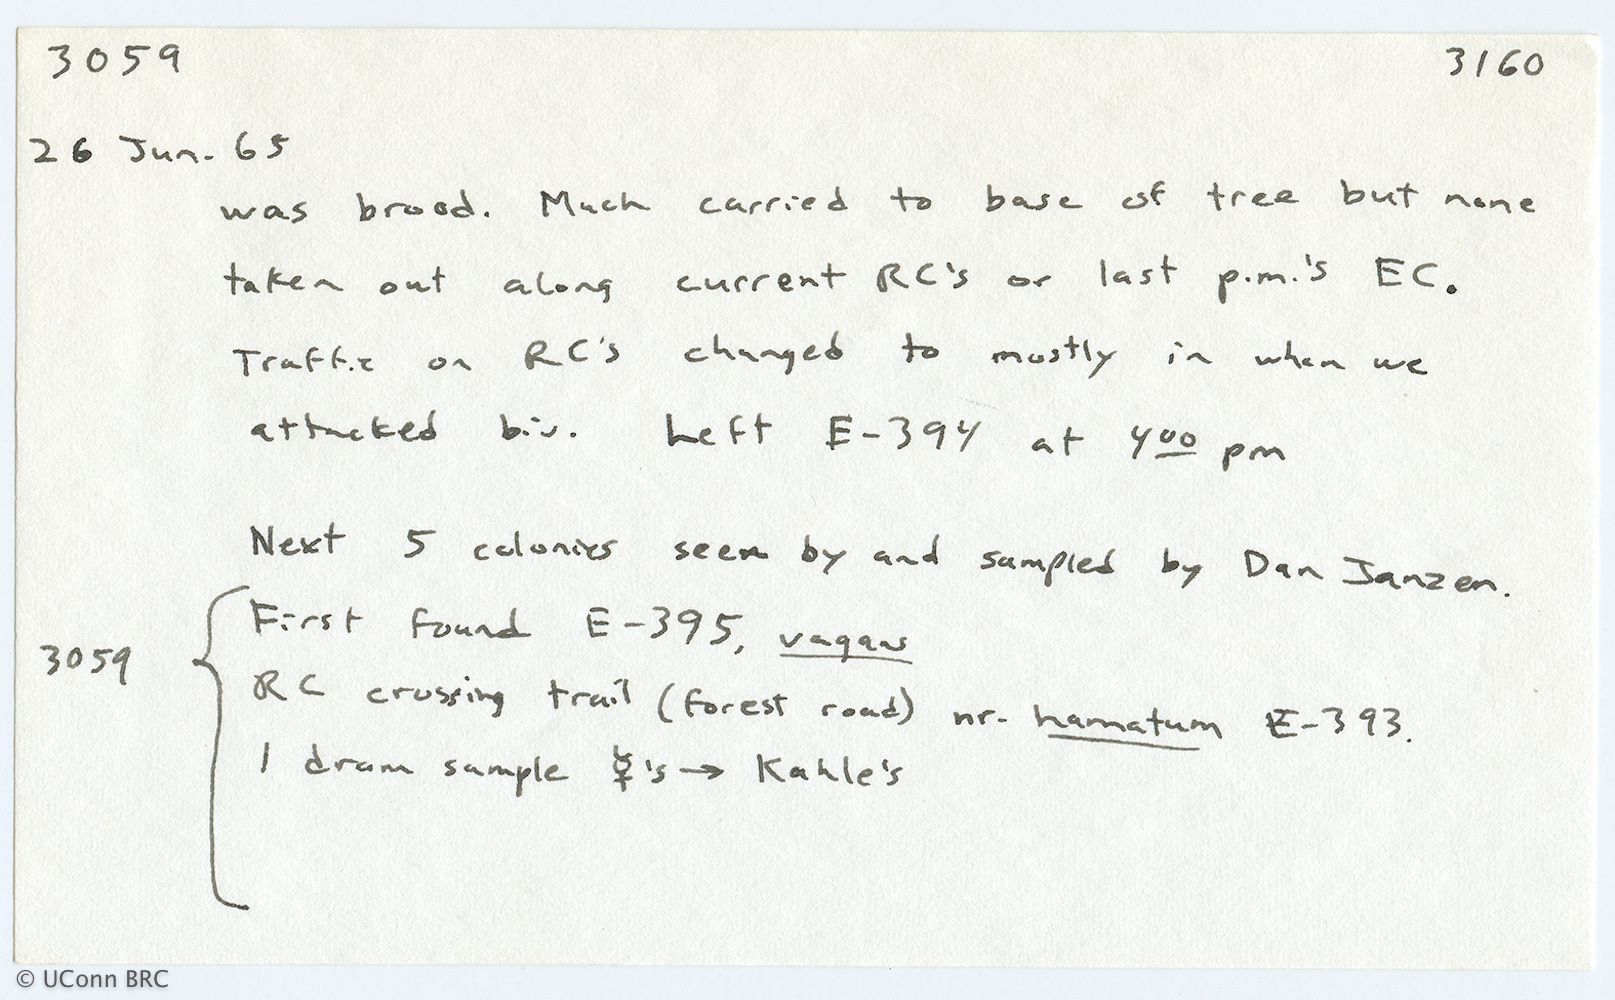 3059 3160
26 Jun. 65
was brood. Much carried to base of tree but none
taken out along current RC's or last p.m.'s EC.
Traffic on RC's changed to mostly in when we
attacked biv. Left E-394 at 4 00 pm
Next 5 colonies seen by and sampled by Dan Janzen.
First found E-395, vagans
3059
RC crossing trail (forest road) nr. hamatum E-393.
1 dram sample ☿'s → Kahle's
© UConn BRC